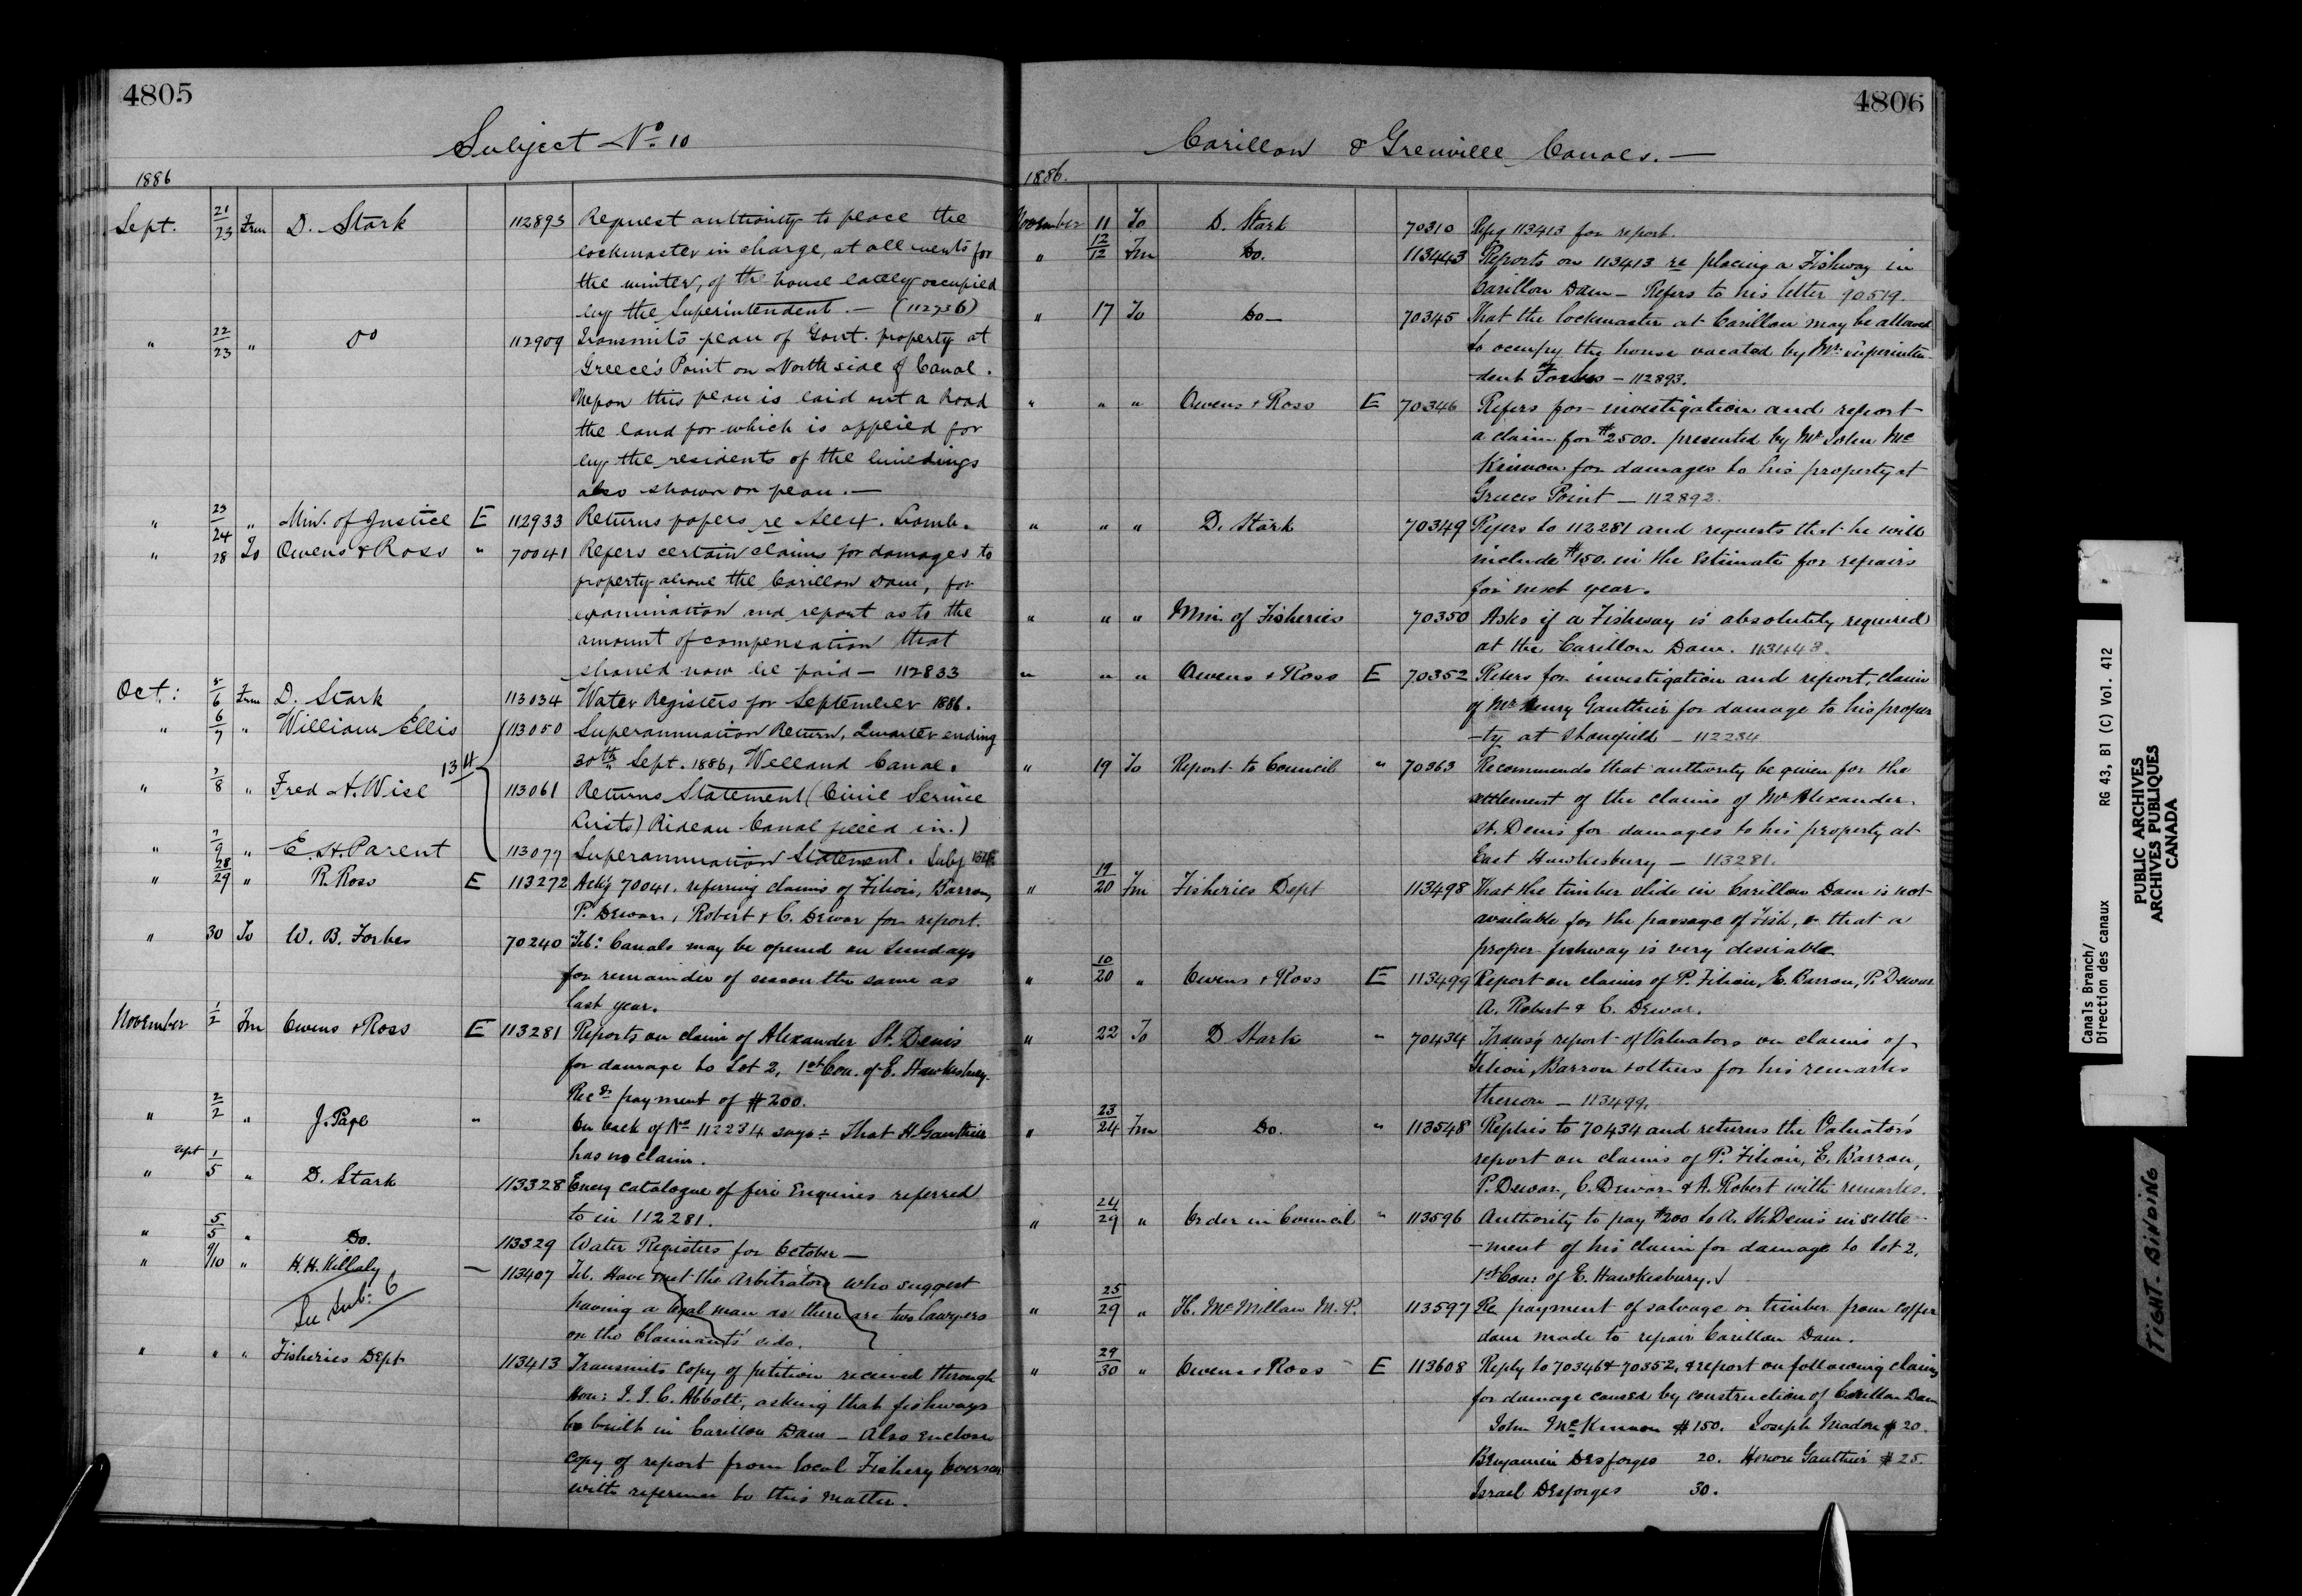 4805
Subject No. 10
1886
Sept. 21/23 Frm D. Stark 112893 Request authority to place the
lockmaster in charge, at all events for
the winter, of the house lately occupied
by the Superintendent. — (112736)
" 22/23 " Do 112909 Transmits plan of Govt. property at
Greece's Point on North side of Canal.
Upon this plan is laid out a Road
the land for which is applied for
by the residents of the buildings
also shown on plan. —
" 23/24 " Min. of Justice E 112933 Returns papers re Alex. Lamb.
" 28 To Owens & Ross " 70041 Refers certain claims for damages to
property above the Carillon Dam, for
examination and report as to the
amount of compensation that
should now be paid — 112833
Oct: 5/6 Frm D. Stark 113034 Water Registers for September 1886.
" 6/7 " William Ellis 113050 Superannuation Return, Quarter ending
30th Sept. 1886, Welland Canal.
" 7/8 " Fred A. Wise 134 113061 Returns Statement (Civil Service
Lists) Rideau Canal filled in.)
" 7/9 " E. H. Parent 113077 Superannuation Statement. Subj 134
" 28/29 " R. Ross E 113272 Ackg 70041. referring claims of Filion, Barron,
P. Dewar, Robert & C. Dewar for report.
" 30 To W. B. Forbes 70240 "Tel": Canals may be opened on Sundays
for remainder of season the same as
last year.
November 1/2 Fm Owens & Ross E 113281 Reports on claim of Alexander St. Denis
for damage to Lot 2, 1st Con. of E. Hawkesbury.
Recds payment of $200.
" 2/2 " J. Page " On back of No 112284 says: That H. Gauthier
has no claim.
" Sept 1/5 " D. Stark 113328 Encg catalogue of fire Enquiries referred
to in 112281.
" 5/5 " Do. 113329 Water Registers for October —
" 9/10 " H. H. Killaly — 113407 Tel. Have met the Arbitrators who suggest
having a legal man as there are two lawyers
on the Claimants' side.
See Sub: 6
" " " Fisheries Dept 113413 Transmits copy of petition received through
Hon: J. J. C. Abbott, asking that fishways
be built in Carillon Dam — Also encloses
copy of report from local Fishery Overseer
with reference to this matter.
4806
Carillon & Grenville Canals. —
1886.
November 11 To D. Stark 70310 Refg 113413 for report.
" 12/12 Fm Do. 113443 Reports on 113413 re placing a Fishway in
Carillon Dam — Refers to his letter 90519.
" 17 To Do — 70345 That the lockmaster at Carillon may be allowed
to occupy the house vacated by Mr. Superinten-
-dent Forbes — 112893.
" " " Owens & Ross E 70346 Refers for investigation and report
a claim for $2500. presented by Mr John Mc
Kinnon for damages to his property at
Greeces Point — 112892.
" " " D. Stark 70349 Refers to 112281 and requests that he will
include $150. in the Estimate for repairs
for next year.
" " " Min of Fisheries 70350 Asks if a Fishway is absolutely required
at the Carillon Dam. 113443.
" " " Owens & Ross E 70352 Refers for investigation and report, claim
of Mr Henry Gauthier for damage to his proper
-ty at — 112284
" 19 To Report to Council " 70363 Recommends that authority be given for the
settlement of the claims of Mr Alexander
St. Denis for damages to his property at
East Hawkesbury — 113281.
" 19/20 Fm Fisheries Dept 113498 That the timber slide in Carillon Dam is not
available for the passage of Fish, & that a
proper fishway is very desirable
" 10/20 " Owens & Ross E 113499 Report on claims of P. Filion, E. Barron, P. Dewar
A. Robert & C. Dewar.
" 22 To D Stark " 70434 Transg report of Valuators on claims of
Filion, Barron & others for his remarks
thereon — 113499.
" 23/24 Fm Do. " 113548 Replies to 70434 and returns the Valuators'
report on claims of P. Filion, E. Barron,
P. Dewar, C. Dewar & A. Robert with remarks.
" 24/29 " Order in Council " 113596 Authority to pay $200 to A. St. Denis in settle-
-ment of his claim for damage to Lot 2,
1st Con: of E. Hawkesbury.
" 25/29 " H. McMillan M. P. 113597 Re payment of salvage on timber from coffer
dam made to repair Carillon Dam.
" 29/30 " Owens & Ross E 113608 Reply to 70346 & 70352, & report on following claims
for damage caused by construction of Carillon Dam
John McKinnon $150. Joseph Madore $20.
Benjamin Desforges 20. Honore Gauthier $25.
Israel Desforges 30.
Canals Branch/
Direction des canaux RG 43, B1 (C) Vol. 412
PUBLIC ARCHIVES
ARCHIVES PUBLIQUES
CANADA
TIGHT BINDING